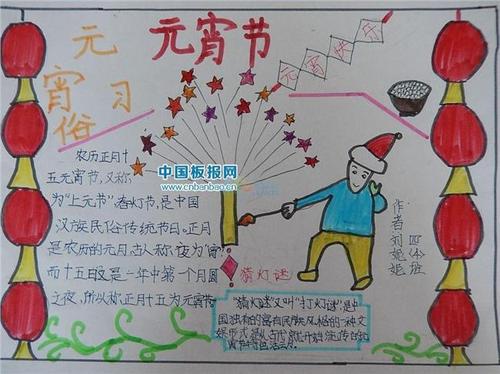 元宵节
元宵习俗
元宵快乐
农历正月十
五元宵节，又称
为“上元节”春灯节，是中国
汉族民俗传统节日。正月
是农历的元月，古人称夜为“宵”
而十五日又是一年中第一个月圆
之夜，所以称正月十五为元宵节
中国板报网
www.cnbanbao.cn
猜灯谜
“猜灯谜”又叫“打灯谜”是中
国独有的富有民族风格的一种文
娱形式
作者
四
班